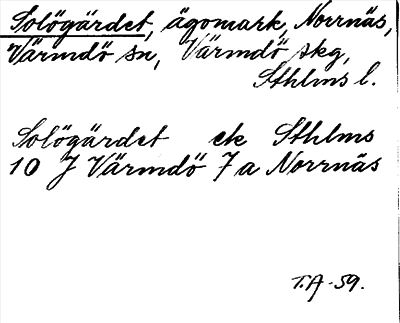 Solögärdet, ägomark, Norrnäs,
Värmdö sn, Värmdö skg,
Sthlms l.
Solögärdet ek Sthlms
10 J Värmdö 7 a Norrnäs
T.A-59.